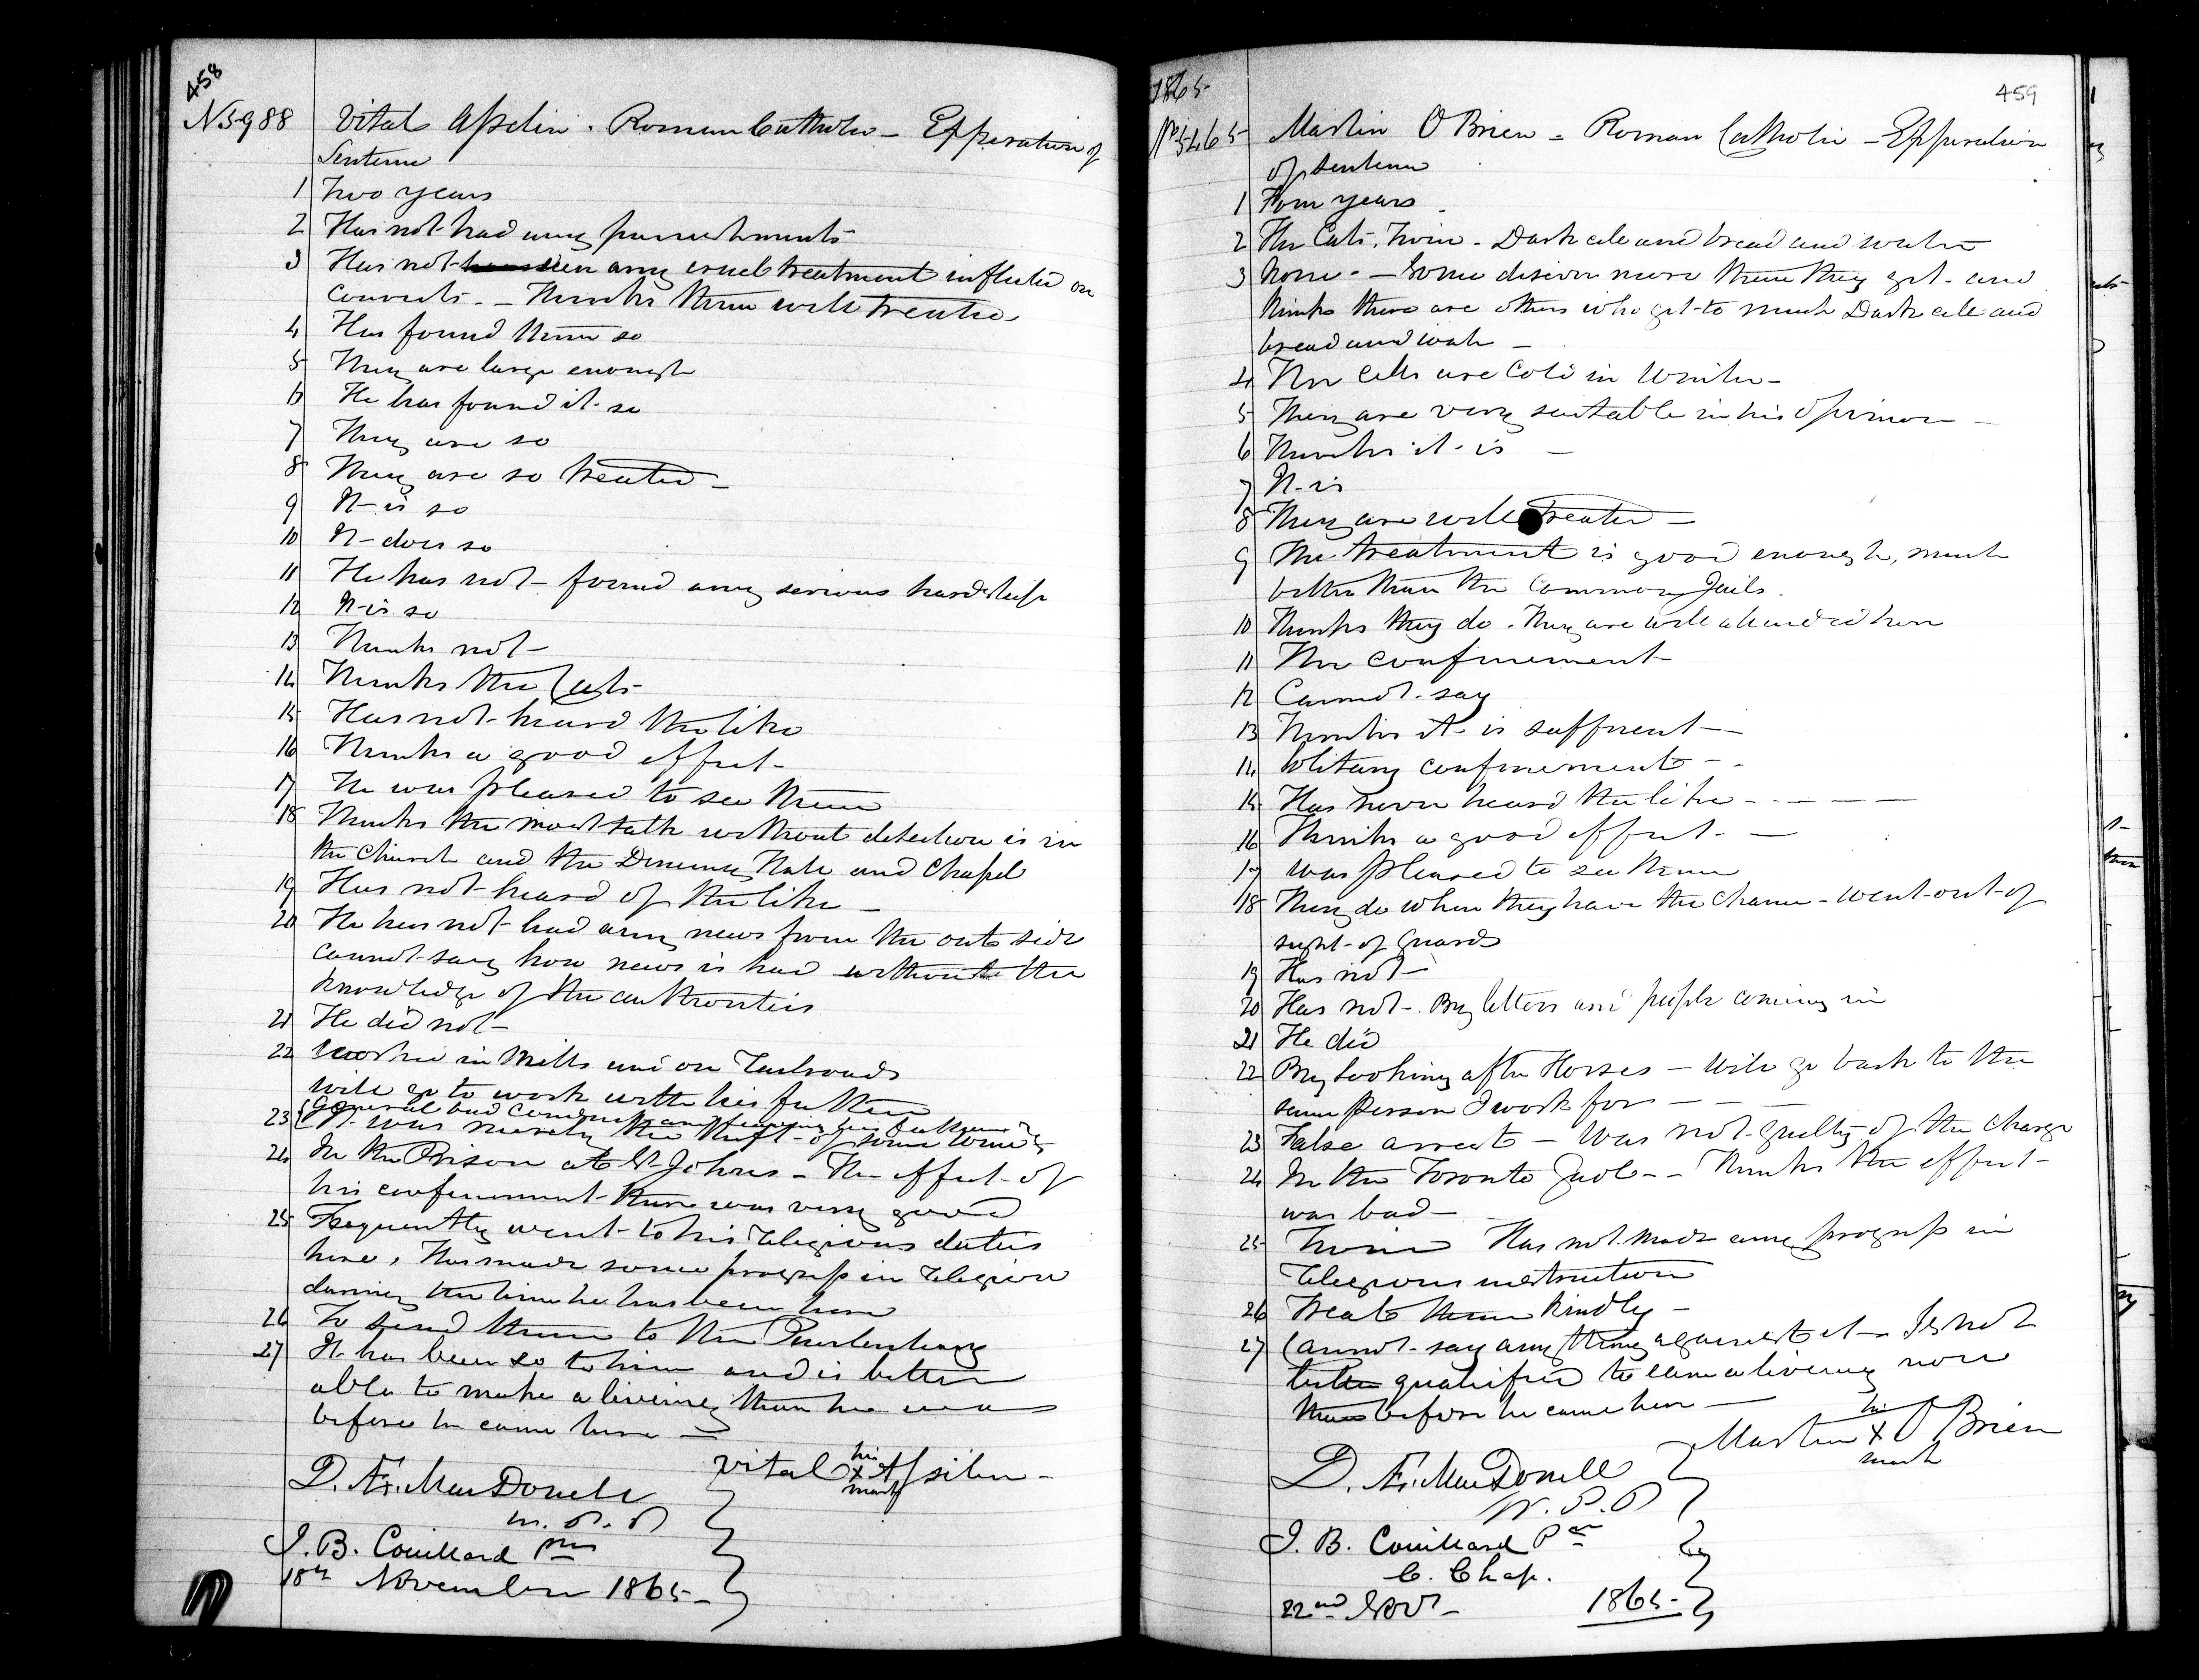 458
No 5988 Vital Asselin. Roman Catholic – Expiration of
Sentence
1 Two years
2 Has not had any punishments
3 Has not seen any cruel treatment inflicted on
convicts. – Thinks them well treated
4 Has found them so
5 They are large enough
6 He has found it so
7 They are so
8 They are so treated –
9 It is so
10 It does so
11 He has not found any serious hardship
12 It is so
13 Thinks not –
14 Thinks the Cats
15 Has not heard the like
16 Thinks a good effect –
17 He was pleased to see them
18 Thinks the most talk without detection is in
the Church and the Dining Hall and Chapel
19 Has not heard of the like –
20 He has not had any news from the out side
cannot say how news is had without the
knowledge of the authorities
21 He did not –
22 Worked in Mills and on Railroads
will go to work with his father
23 General bad company and leaving his father
It was merely the theft of some
24 In the Prison at St Johns – The effect of
his confinement there was very good
25 Frequently went to his religious duties
here, Has made some progress in religion
during the time he has been here
26 To send them to the Penitentiary
27 It has been so to him and is better
able to make a living than he was
before he came here –
Vital his x mark Asselin –
D. Æ. MacDonell
W. P. P
J. B. Couillard
18th November 1865 –
1865 –
459
No 5465 Martin O Brien – Roman Catholic – Expiration
of sentence
1 Four years
2 The Cats, twice – Dark cell and bread and water
3 None – Some deserve more than they get – and
thinks there are others who get to much Dark cell and
bread and water –
4 The Cells are Cold in Winter –
5 They are very suitable in his opinion –
6 Thinks it is –
7 It is
8 They are well treated –
9 The treatment is good enough, much
better than the Common Jails.
10 Thinks they do. They are well attended here
11 The confinement –
12 Cannot say
13 Thinks it is sufficient –
14 Solitary confinement – –
15 Has never heard the like – – – –
16 Thinks a good effect – –
17 Was pleased to see them
18 They do when they have the chance – went out of
sight of Guards
19 Has not –
20 Has not – By letters and people coming in
21 He did
22 By looking after Horses – Will go back to the
same Person I work for – – –
23 False arrest – Was not guilty of the charge
24 In the Toronto Gaol – – Thinks the effect
was bad –
25 Twice Has not made any progress in
religious instruction
26 Treat them kindly –
27 Cannot say any thing against it – Is not
better qualified to earn a living now
than before he came here –
Martin his x mark O Brien
D. Æ. MacDonell
W. P. P
J. B. Couillard
C. Chap.
22nd Nov – 1865 –